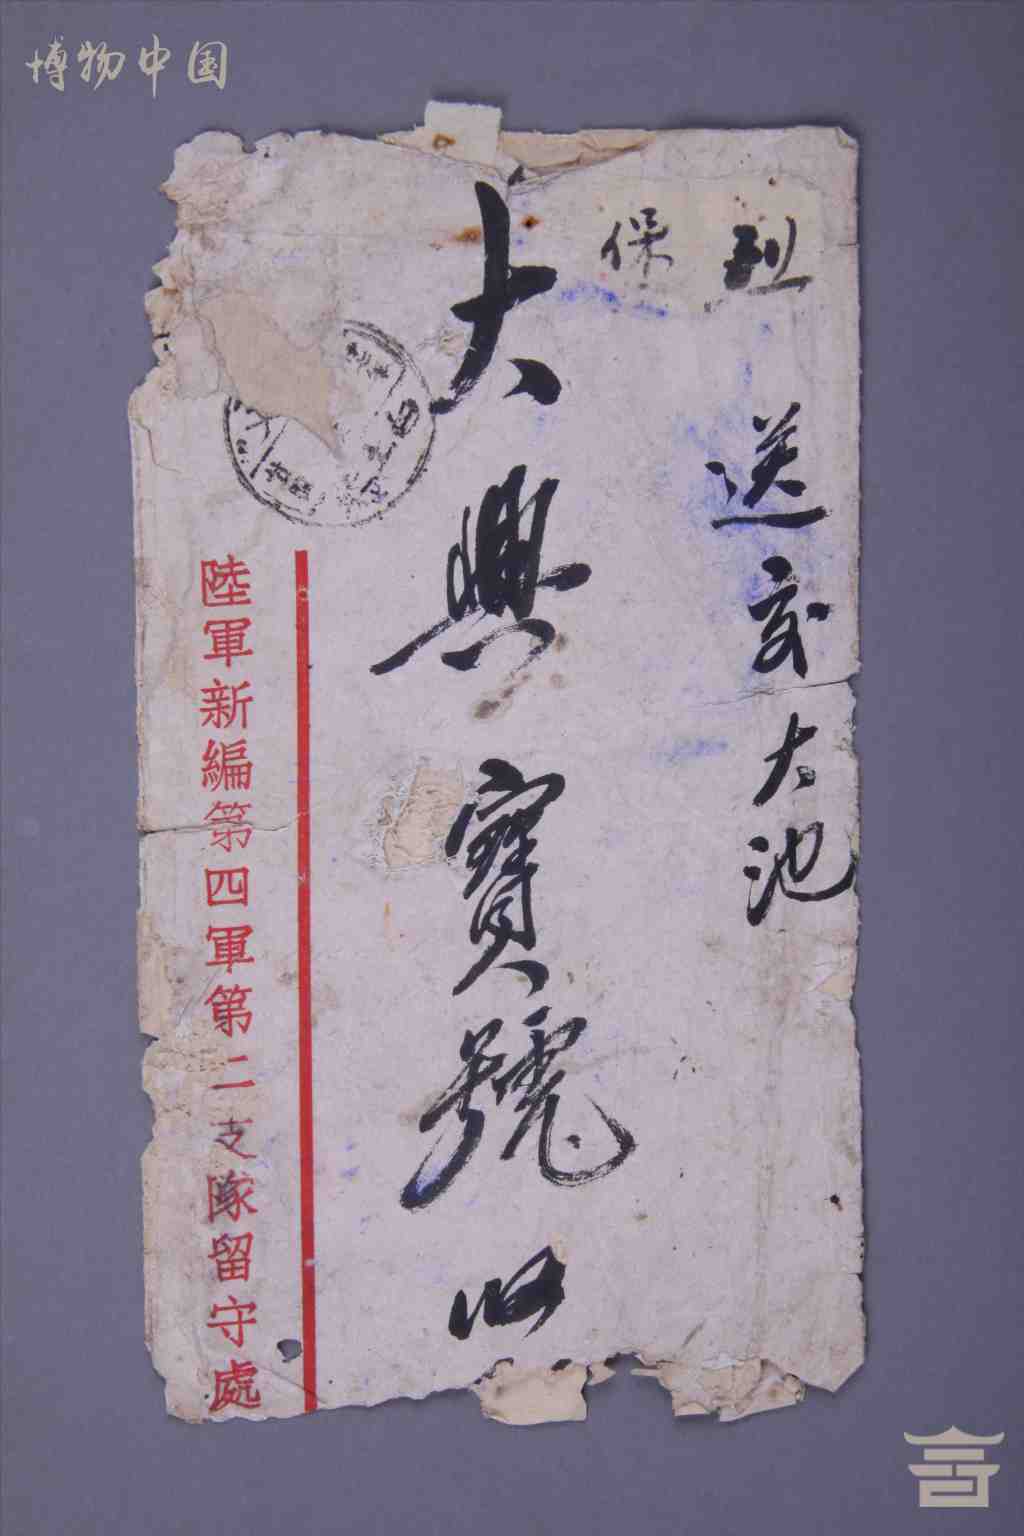 博物中国
送交大池
保
大興寶號收
陸軍新編第四軍第二支隊留守處